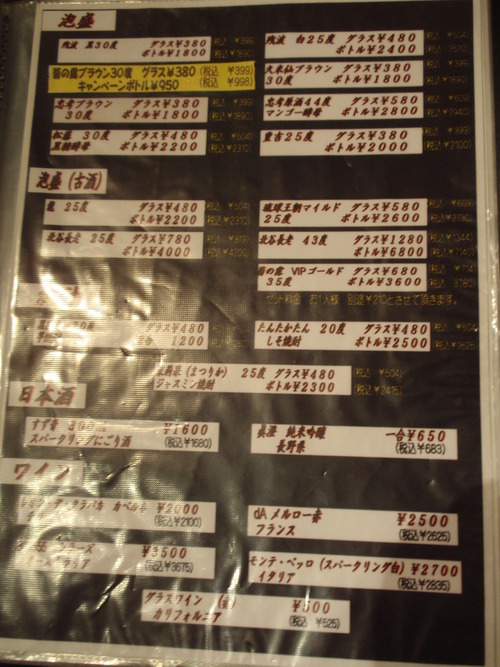 泡盛
残波 黒30度 グラス¥380 (税込 ¥399)
ボトル¥1800 (税込 ¥1890)
残波 白25度 グラス¥480 (税込 ¥504)
ボトル¥2400 (税込 2520)
菊の露ブラウン30度 グラス¥380 (税込 ¥399)
キャンペーンボトル¥950 (税込 ¥998)
久米仙ブラウン グラス¥380 (税込 ¥399)
30度 ボトル¥1800 (税込 ¥1890)
忠孝ブラウン グラス¥380 (税込 ¥399)
30度 ボトル¥1800 (税込 ¥1890)
忠孝原酒44度 グラス¥580 (税込 ¥609)
マンゴー酵母 ボトル¥2800 (税込 ¥2940)
松藤 30度 グラス¥480 (税込 ¥504)
黒糖酵母 ボトル¥2200 (税込 ¥2310)
重吉25度 グラス¥380 (税込 ¥399)
ボトル¥2000 (税込 ¥2100)
泡盛(古酒)
龍 25度 グラス¥480 (税込 ¥504)
ボトル¥2200 (税込 ¥2310)
琉球王朝マイルド グラス¥580 (税込 ¥609)
25度 ボトル¥2600 (税込 ¥2730)
北谷長老 25度 グラス¥780 (税込 ¥819)
ボトル¥4000 (税込 ¥4200)
北谷長老 43度 グラス¥1280 (税込 ¥1344)
ボトル¥6800 (税込 ¥7140)
菊の露 VIPゴールド グラス¥680 (税込 ¥714)
35度 ボトル¥3600 (税込 3780)
セット料金 お1人様 別途¥210とさせて頂きます。
グラス¥480
1200
たんたかたん 20度 グラス¥480 (税込 ¥504)
しそ焼酎 ボトル¥2500 (税込 ¥2625)
茉莉花(まつりか) 25度 グラス¥480 (税込 ¥504)
ジャスミン焼酎 ボトル¥2300 (税込 ¥2415)
日本酒
すず音 300ml ¥1600
スパークリングにごり酒 (税込¥1680)
真澄 純米吟醸 一合¥650
長野県 (税込¥683)
ワイン
カベルネ ¥2000
(税込¥2100)
dA メルロー赤 ¥2500
フランス (税込¥2625)
¥3500
(税込¥3675)
モンテ・ベッロ (スパークリング白) ¥2700
イタリア (税込¥2835)
グラスワイン ¥500
カリフォルニア (税込 ¥525)